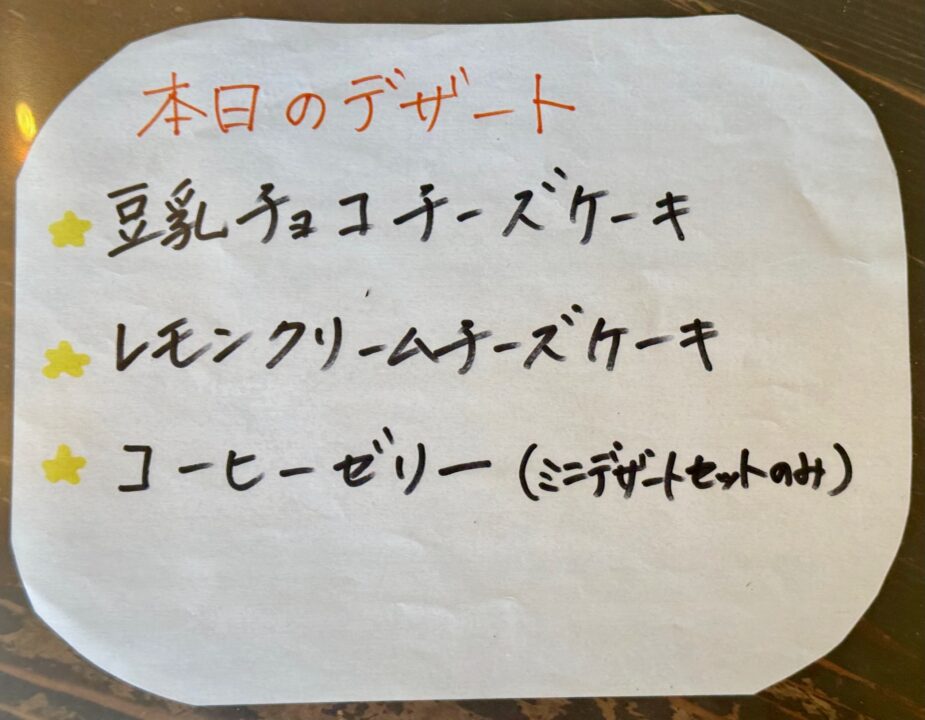 本日のデザート
豆乳チョコチーズケーキ
レモンクリームチーズケーキ
コーヒーゼリー (ミニデザートセットのみ)